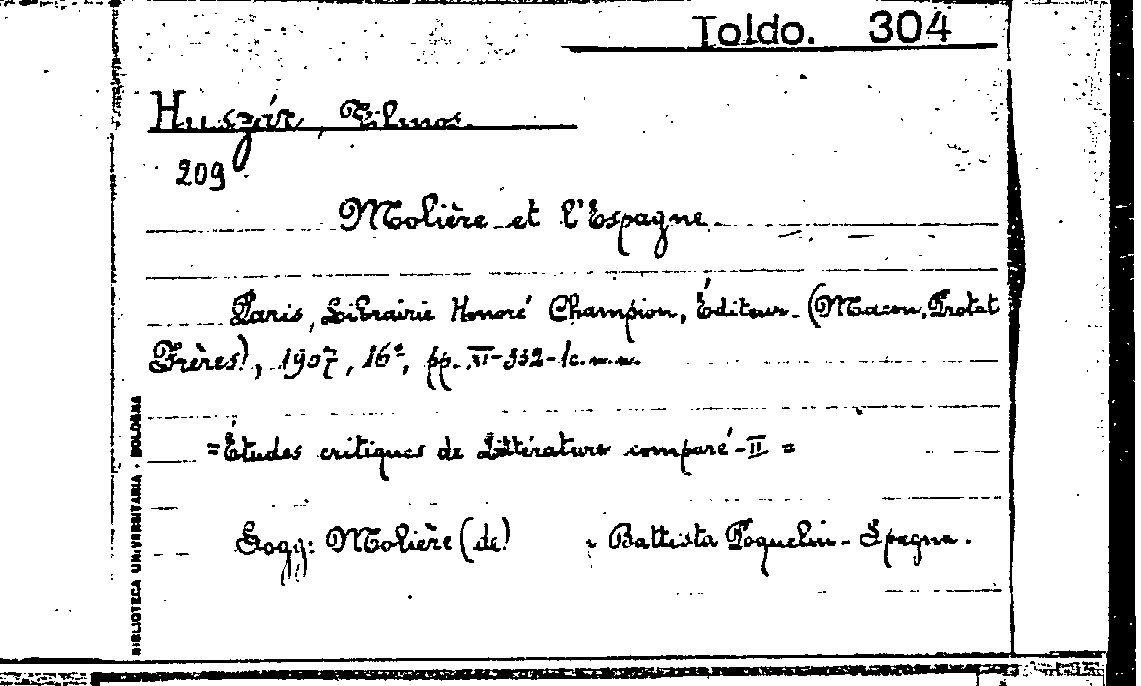 Toldo. 304
Huszár, Vilmos.
209
Molière et l'Espagne.
Paris, Librairie Honoré Champion, Éditeur. (Macon, Protat
Frères), 1907, 16°, pp. XI-332-1c.n.n.
=Études critiques de Littérature comparé-II =
Sogg: Molière (de) Battista Poquelin - Spagna.
BIBLIOTECA UNIVERSITARIA - BOLOGNA